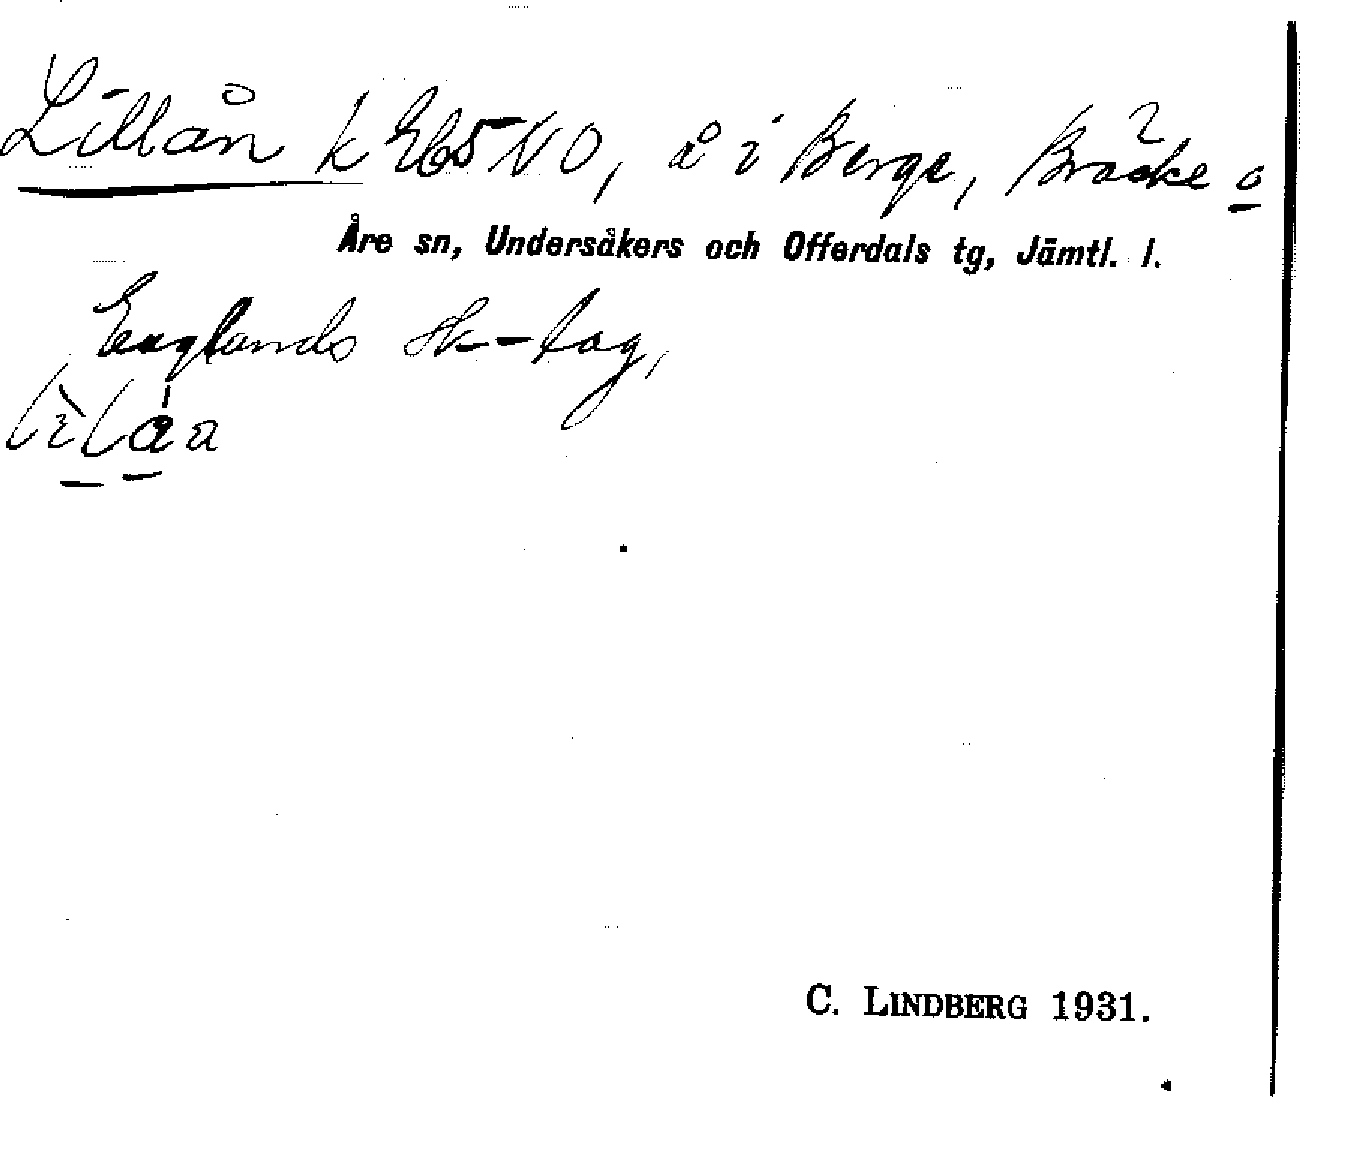 Lillån k 965 NO, å i Berge, Bräcke o
Åre sn, Undersåkers och Offerdals tg, Jämtl. l.
Englands sk-lag,
C. LINDBERG 1931.